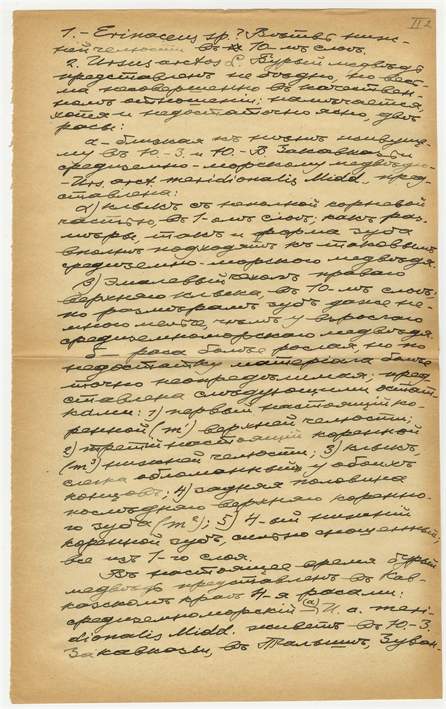 II 2
1. – Erinaceus sp.? Вѣтвь ниж-
ней челюсти въ 10-мъ слоѣ.
2. Ursus arctos L. Бурый медвѣдь
представленъ не бѣдно, но весь-
ма несовершенно въ качествен-
номъ отношеніи; намѣчается,
хотя и недостаточно ясно, двѣ
расы:
а – близкая къ нынѣ живуще-
му въ Ю.-З. и Ю.-В. Закавказьи
средиземно-морскому медвѣдю
– Urs. arct. meridionalis Midd., пред-
ставлена:
α) клыкъ съ неполной корневой
частью, въ 1-омъ слоѣ; какъ раз-
мѣры, такъ и форма зуба
вполнѣ подходятъ къ таковымъ
средиземно-морского медвѣдя.
β) эмалевый чехолъ праваго
верхняго клыка, въ 10-мъ слоѣ;
по размѣрамъ зубъ даже не-
много менѣе, чѣмъ у взрослаго
средиземноморскаго медвѣдя.
б – раса болѣе рослая, но по
недостатку матеріала болѣе
точно неопредѣлимая; пред-
ставлена слѣдующими остат-
ками: 1) первый настоящій ко-
ренной (m¹) верхней челюсти;
2) третій настоящій коренной
(m³) нижней челюсти; 3) клыкъ,
слегка обломанный у обоихъ
концовъ; 4) задняя половина
послѣдняго верхняго коренно-
го зуба (m²); 5) 4-ый нижній
коренной зубъ, сильно сношенный;
все изъ 1-го слоя.
Въ настоящее время бурый
медвѣдь представленъ въ Кав-
казскомъ краѣ 4-я расами:
средиземноморскій (а) U. a. meri-
dionalis Midd. живетъ въ Ю.-З.
Закавказьи, въ Талышѣ, Зуван-